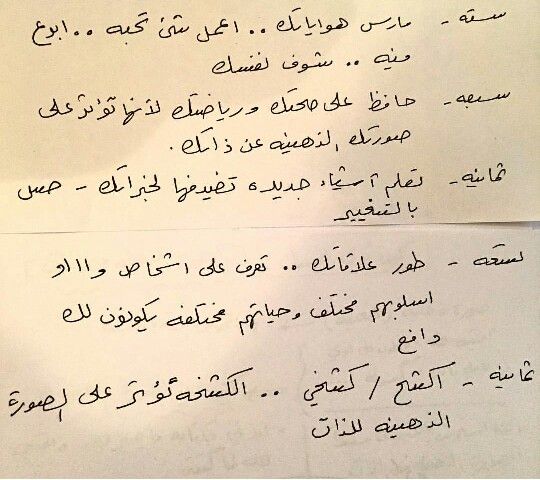 سته - مارس هواياتك .. اعمل شئ تحبه .. ابدع
فيه .. شوف نفسك
سبعه - حافظ على صحتك ورياضتك لأنها تؤثر على
صورتك الذهنيه عن ذاتك .
ثمانيه - تعلم أشياء جديده تضيفها لخبراتك - حس
بالتغيير
تسعه - طور علاقاتك .. تعرف على اشخاص واااو
اسلوبهم مختلف وحياتهم مختلفه يكونون لك
دافع
ثمانيه - اكشخ / كشخي .. الكشخه تؤثر على الصورة
الذهنيه للذات